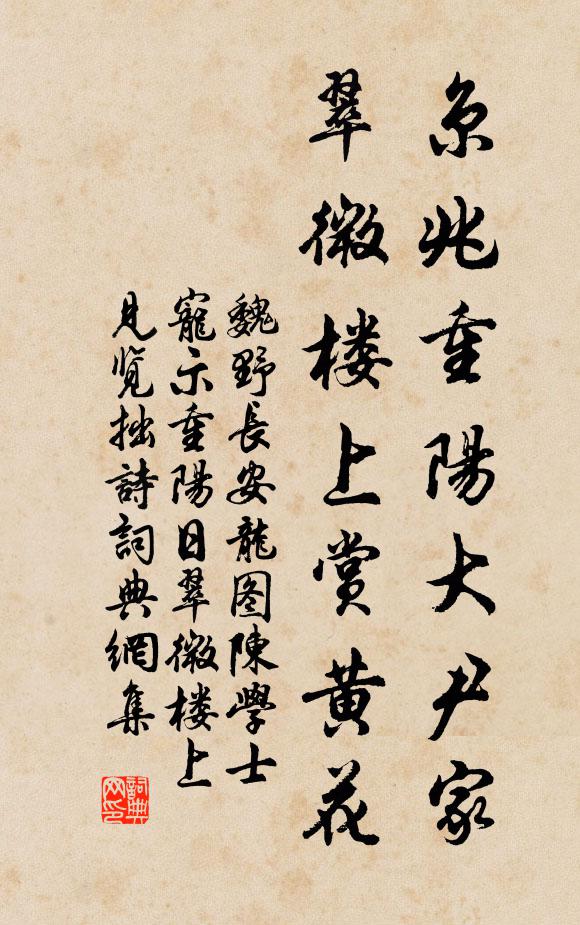 京兆重陽大尹家
翠微楼上賞黄花
魏野長安龍图陳學士
寵示重陽日翠微楼上
見覽拙詩詞典網集
詞典网印